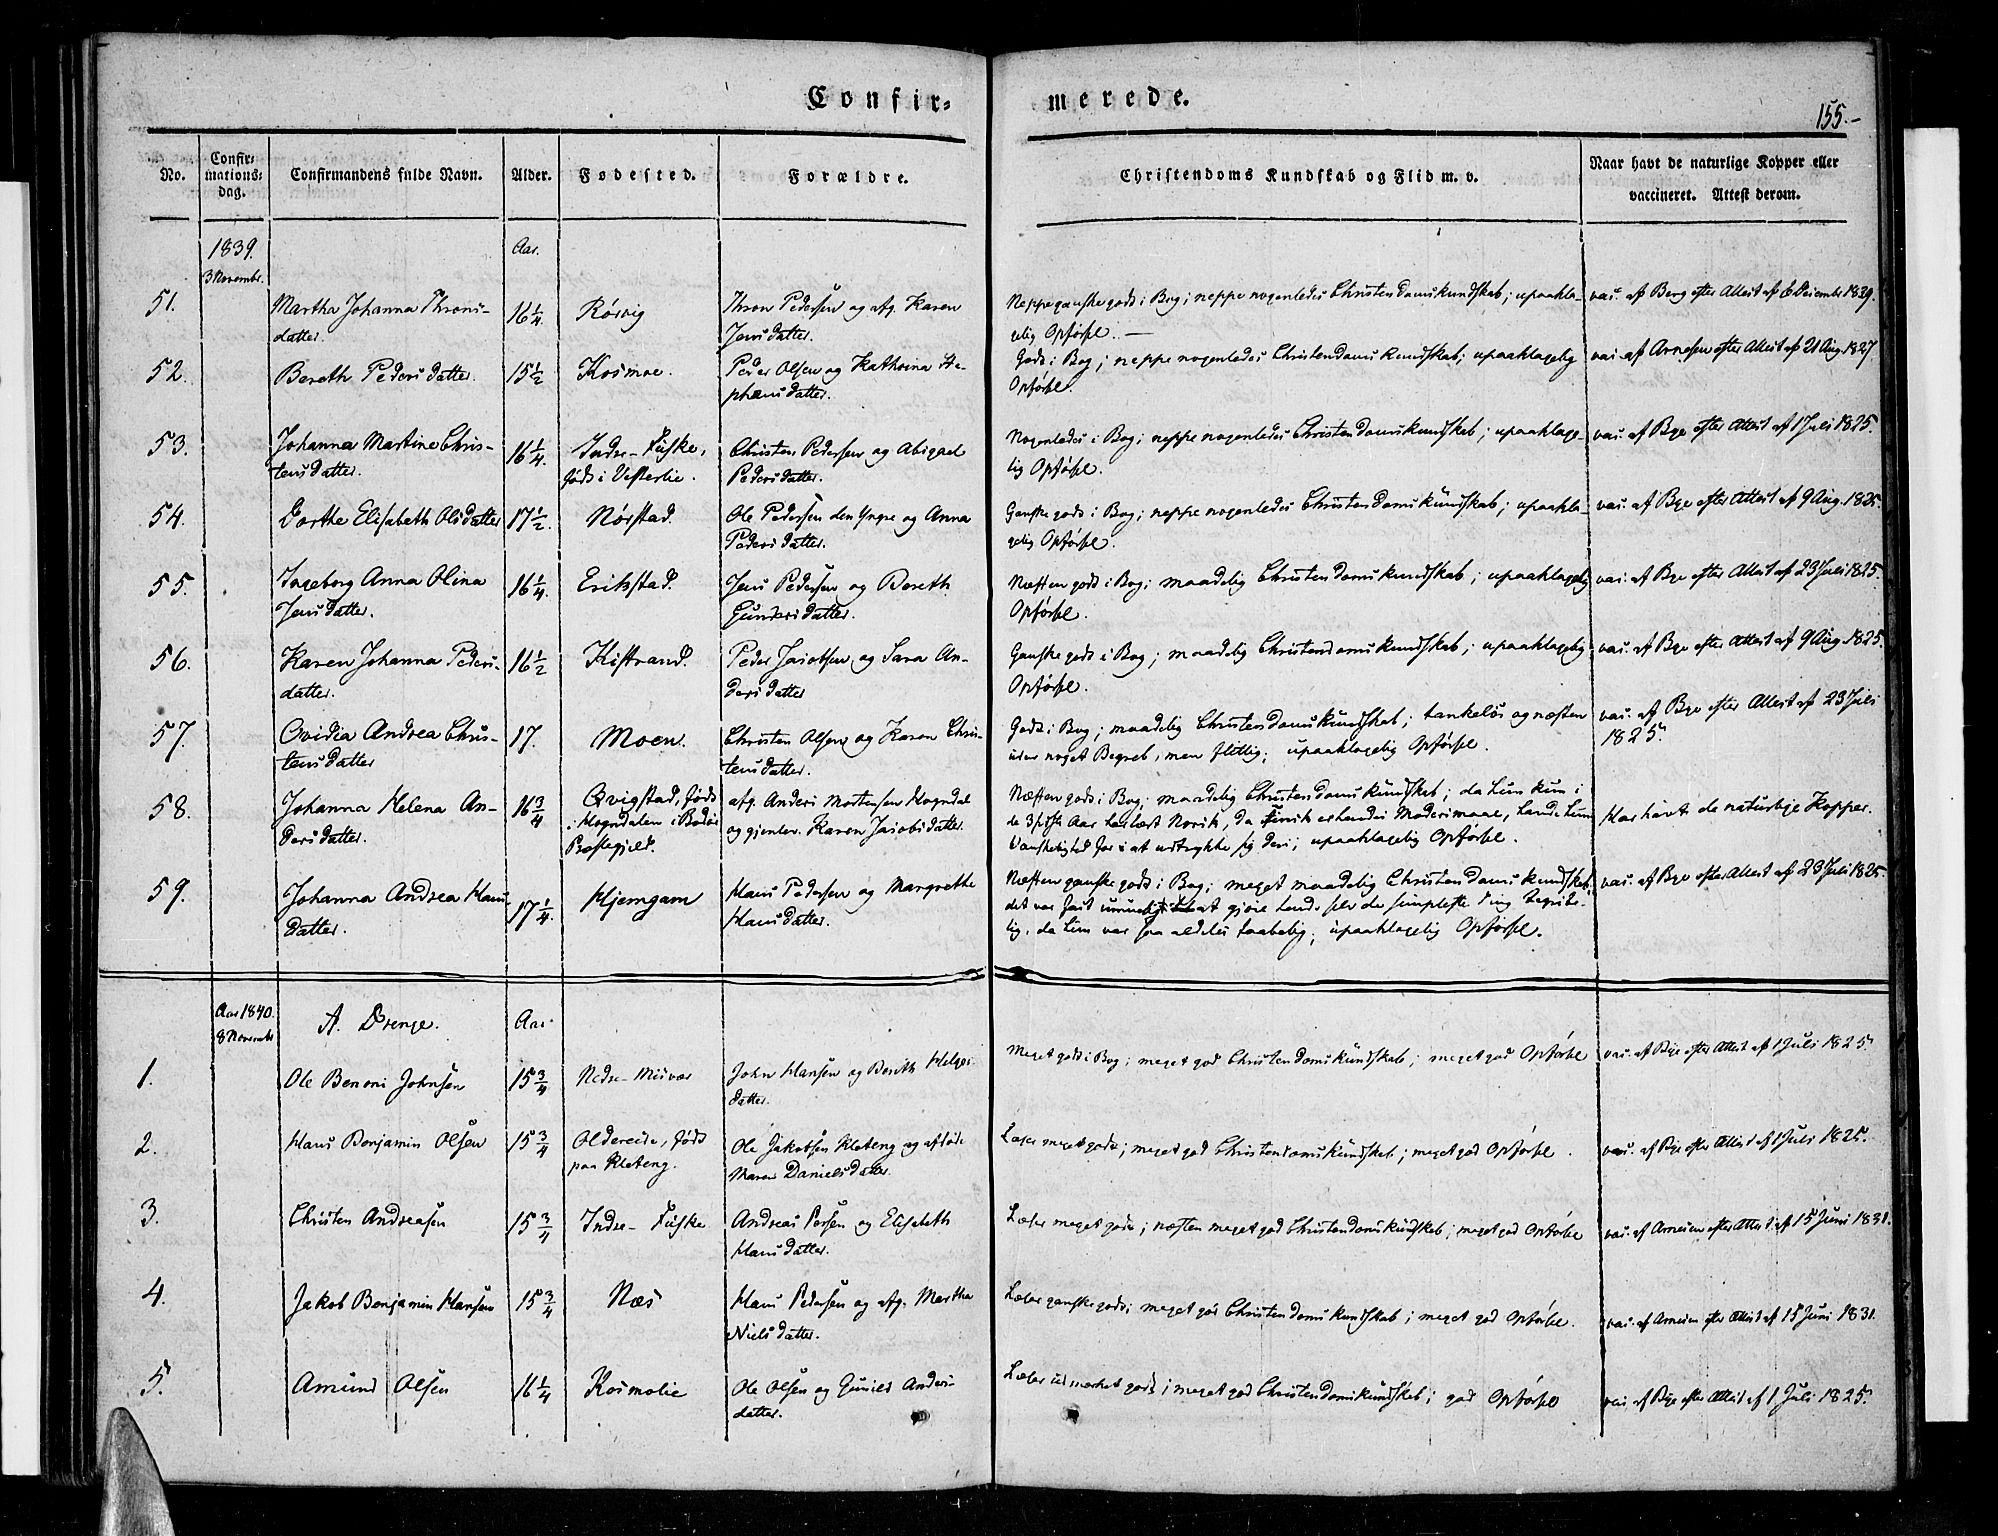 Confir-
merede.
155.-
No.
Confir-
mations-
dag.
Confirmandens fulde Navn.
Alder.
Fødested.
Forældre.
Christendoms Kundskab og Flid m. v.
Naar havt de naturlige Kopper eller
vaccineret. Attest derom.
1839.
3 Novembr.
Aar.
51.
Martha Johanna Throns-
datter.
16 1/4
Rørvig
Thron Pedersen og afg. Karen
Jensdatter.
Neppe ganske godt i Bog; neppe nogenledes Christendomskundskab; upaakla-
gelig Opførsel. —
vac. af Berg efter Attest af 6 Decembr 1839.
52.
Bereth Pedersdatter.
15 1/2
Kosmoe.
Peder Olsen og Kathrina Ste-
phensdatter.
Godt i Bog; neppe nogenledes Christendomskundskab; upaaklagelig
Opførsel.
vac. af Arnesen efter Attest af 21 Aug. 1827
53.
Johanna Martine Chris-
tensdatter.
16 1/4.
Indre-Fuske,
født i Vesterlie.
Christen Pedersen og Abigael
Pedersdatter.
Nogenledes i Bog; neppe nogenledes Christendomskundskab; upaaklage-
lig Opførsel.
vac. af Bye efter Attest af 1 Juli 1825.
54.
Dorthe Elisabeth Olsdatter
17 1/2.
Nørstad.
Ole Pedersen den Yngre og Anna
Pedersdatter.
Ganske godt i Bog; neppe nogenledes Christendomskundskab; upaakla-
gelig Opførsel.
vac. af Bye efter Attest af 9 Aug. 1825.
55.
Ingeborg Anna Olina
Jensdatter.
16 1/4.
Erikstad.
Jens Pedersen og Bereth
Gundersdatter.
Næsten godt i Bog; maadelig Christendomskundskab; upaaklagelig
Opførsel.
vac. af Bye efter Attest af 23 Juli 1825.
56.
Karen Johanna Peders-
datter.
16 1/2
Kistrand.
Peder Jacobsen og Sara An-
dersdatter
Ganske godt i Bog; maadelig Christendomskundskab; upaaklagelig
Opførsel.
vac. af Bye efter Attest af 9 Aug. 1825.
57.
Ovidia Andrea Chris-
tensdatter
17.
Moen.
Christen Olsen og Karen Chris-
tensdatter.
Godt i Bog; maadelig Christendomskundskab; tankeløs og næsten
uden noget Begreb, men flittig; upaaklagelig Opførsel.
vac. af Bye efter Attest af 23 Juli
1825.
58.
Johanna Helena An-
dersdatter.
16 3/4
Qvigstad, født
i Hogndalen i Bodøe
Præstegjeld.
afg. Anders Mortensen Hogndal
og gjenlev. Karen Jacobsdatter.
Næsten godt i Bog; maadelig Christendomskundskab; da hun kun i
de 3 sidst Aar har læst Norsk, da Finsk er hendes Modersmaal, havde hun
Vanskelighed for at udtrykke sig deri; upaaklagelig Opførsel.
Har havt de naturlige Kopper.
59.
Johanna Andrea Hans-
datter.
17 1/4.
Hjemgam
Hans Pedersen og Margrethe
Hansdatter.
Næsten ganske godt i Bog; meget maadelig Christendomskundskab,
det var fast umueligt at gjøre hende selv de simpleste Ting begribe-
lig, da hun var saa aldeles taabelig; upaaklagelig Opførsel.
vac. af Bye efter Attest af 23 Juli 1825.
Aar 1840.
8 Novembr
A. Drenge.
Aar.
1.
Ole Benoni Johnsen
15 3/4
Nedre-Misvær
John Hansen og Berith Helges-
datter.
Meget godt i Bog; meget god Christendomskundskab; meget god Opførsel
vac. af Bye efter Attest af 1 Juli 1825.
2.
Hans Benjamin Olsen
15 3/4
Oldereide, født
paa Kleteng.
Ole Jakobsen Kleteng og afdøde
Maren Danielsdatter.
Læser meget godt; meget god Christendomskundskab; meget god Opførsel.
vac. af Bye efter Attest af 1 Juli 1825.
3.
Christen Andreasen
15 3/4
Indre-Fuske
Andreas Persen og Elisabeth
Hansdatter.
Læser meget godt; næsten meget god Christendomskundskab; meget god Opførsel
vac. af Arnesen efter Attest af 15 Juni 1831.
4.
Jakob Benjamin Hansen
15 3/4
Næs
Hans Pedersen og afg. Martha
Nielsdatter.
Læser ganske godt; meget god Christendomskundskab; meget god Opførsel.
vac. af Arnesen efter Attest af 15 Juni 1831.
5.
Amund Olsen
16 1/4
Kosmolie
Ole Olsen og Gunild Anders-
datter.
Læser udmærket godt; meget god Christendomskundskab; god Opførsel
vac. af Bye efter Attest af 1 Juli 1825.